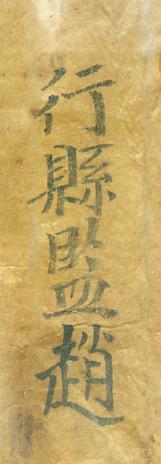 行縣監趙